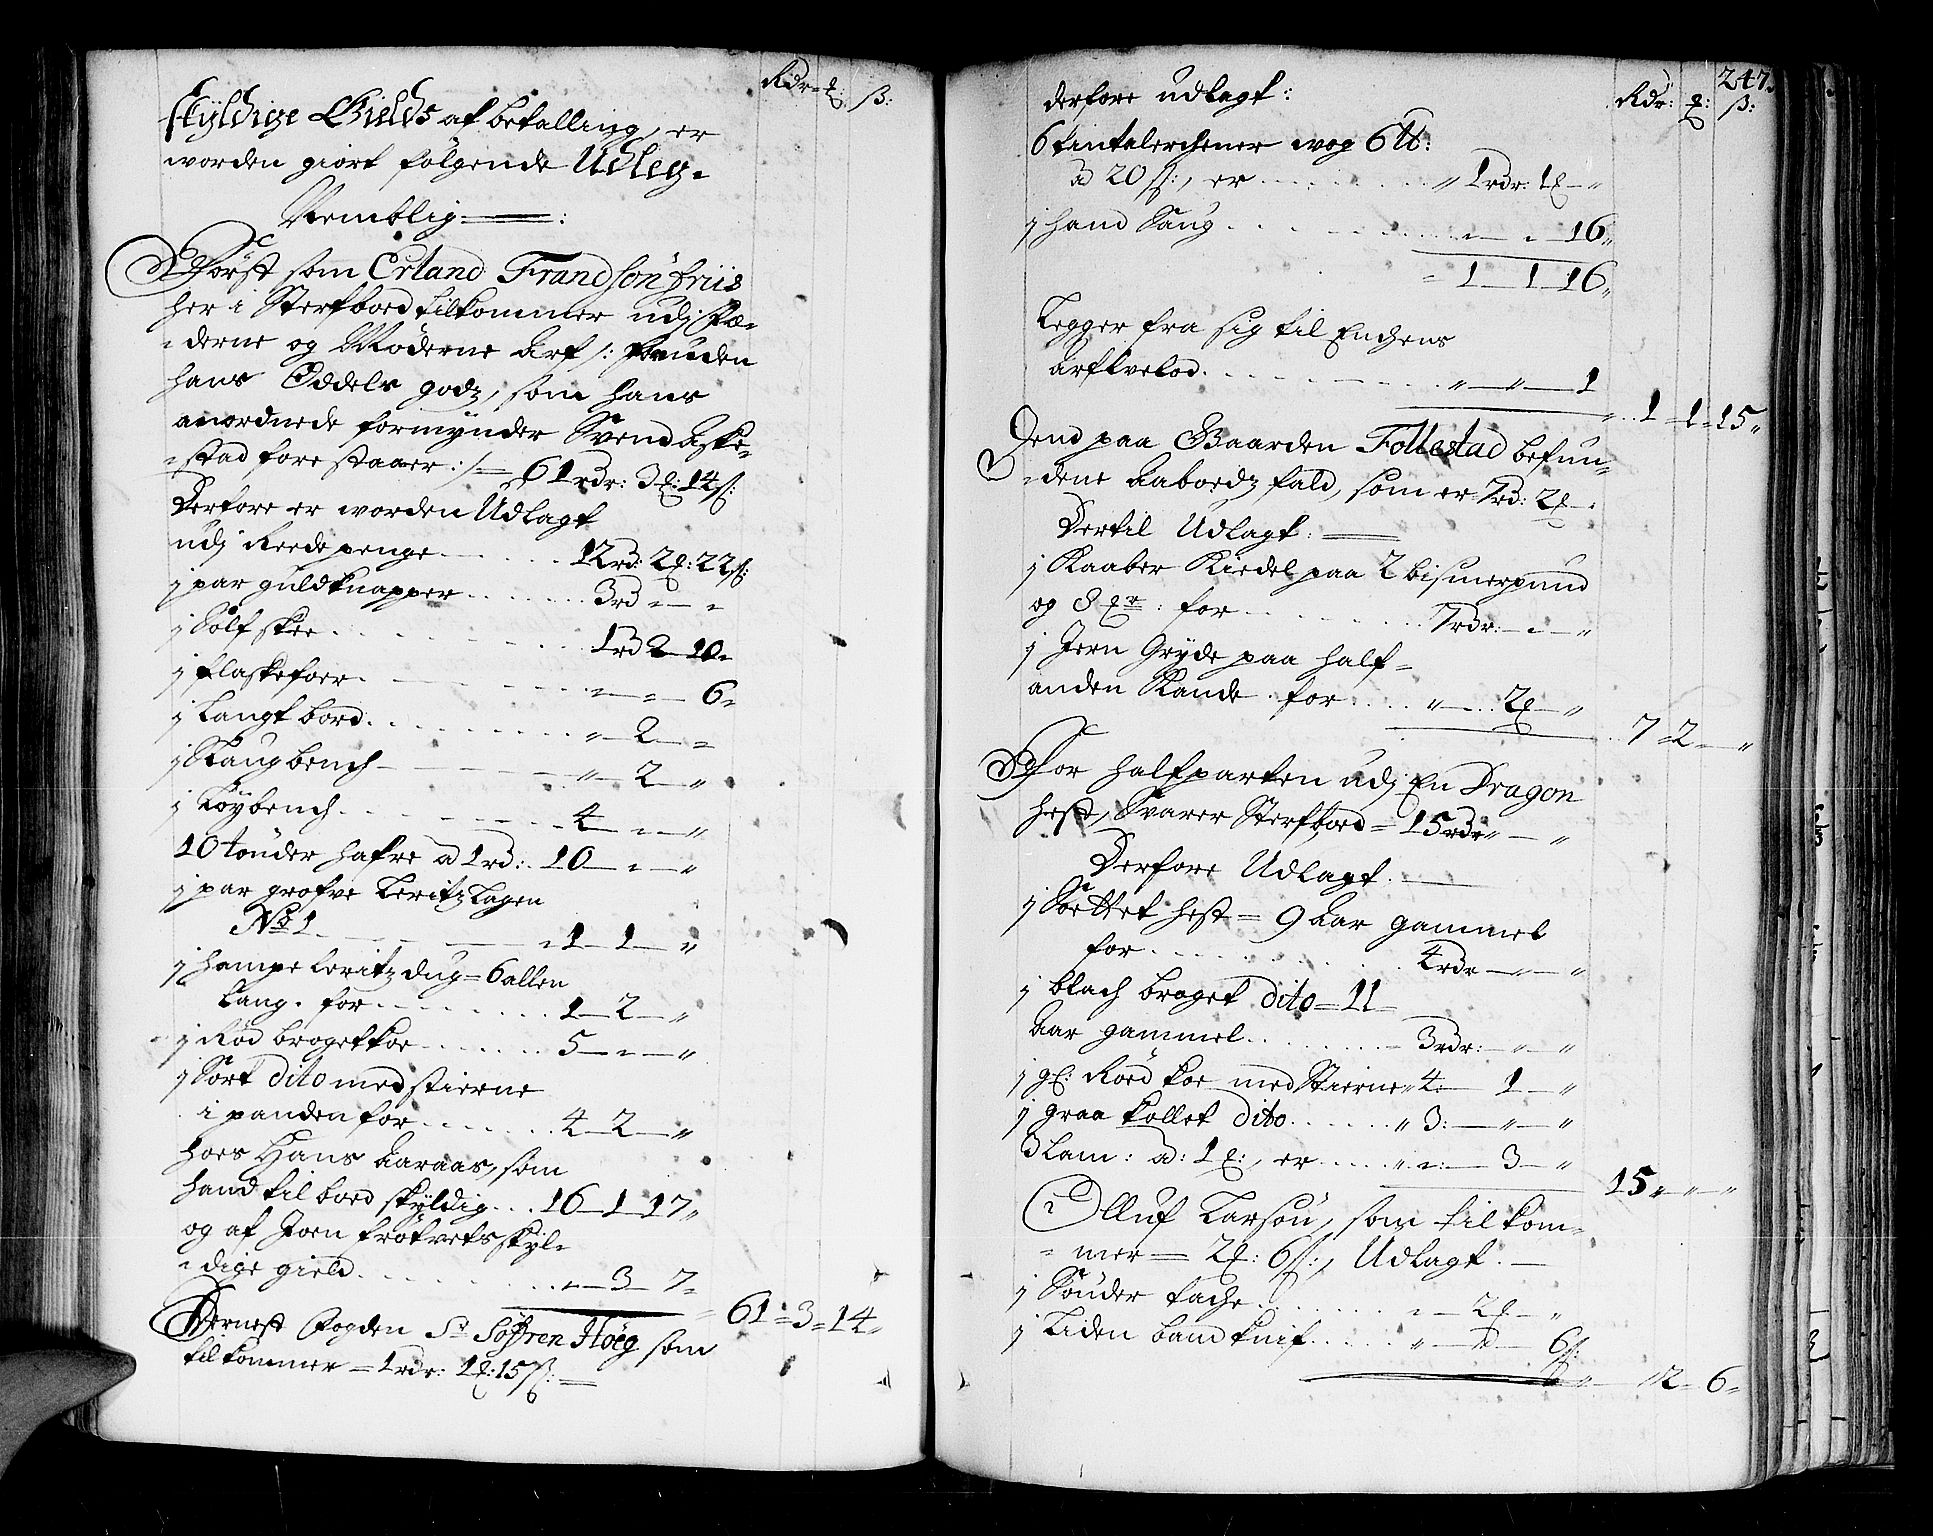 Rdr: ℔: ß:
skyldige Gields afbetalling, er
worden giort følgende Udleg.
Nemblig:
Først som Erland Frandsøn friis
her i Sterfbord tilkommer udj fæ-
derne og Møderne Arf /: foruden
hans Oddels godz, som hans
anordnede formynder Svend Aske-
stad forestaaer :/ 61 rdr: 3 ℔: 14 ß:
Derfore er worden Udlagt
udj Reede penge 12 rd: 2 ℔: 22 ß:
j par guldknapper 3 rd " "
j Sølf skee 1 rd 2 10
j flaskefoer " " 6
j Langt bord " 2 "
j Skaugbench " 2 "
j Løybench 4 " "
10 tønder hafre a 1 rd: 10 " "
j par grofve Leritz Lagen
No 1 1 1 "
j hampe leritz dug 6 allen
lang. for 1 2 "
j Rød broget koe 5 " "
j Sort dito med stierne
i panden for 4 2 "
hoes Hans Aaraas, som
hand til bord skyldig 16 1 17
og af Joen Frøtvets skyl-
dige gield " 3 7
61 3 14
Dernest Fogden Sr Søfren Høeg som
tilkommer 1 rdr: 1 ℔: 15 ß:
247.
Rdr: ℔: ß:
derfore udlagt:
6 tintalerchener wog 6 ℔:
a 20 ß:, er " 1 rdr: 1 ℔ "
j hand Saug " " 16
1 1 16
Legger fra sig til Enchens
arftvelod " " 1
1 1 15
Dend paa Gaarden Follestad befun-
dene Aabordz fald, som er 7 rd: 2 ℔
Dertil Udlagt:
j Kaaber Kiedel paa 2 bismerpund
og 8 ℔r: for 7 rdr: " "
j Jern Gryde paa half-
anden Kande. for " 2 ℔ "
7 2 "
For halfparten udj En Dragon
hest, Svarer Sterfbord 15 rdr " "
Derfore Udlagt.
j Sortet hest 9 Aar gammel
for 4 rdr " "
j black broget dito 11
Aar gammel 3 rdr: " "
j gl: Røed koe med Stierne 4: 1 "
j graa kollet dito " 3: " "
3 Lam: a: 1 ℔:, er " " 3 "
15 " "
Olluf Larsøn, som tilkom-
mer 2 ℔: 6 ß:, Udlagt.
j Sønder tache " 2 ℔ "
j Liden baand knif " " 6 ß:
" 2 6